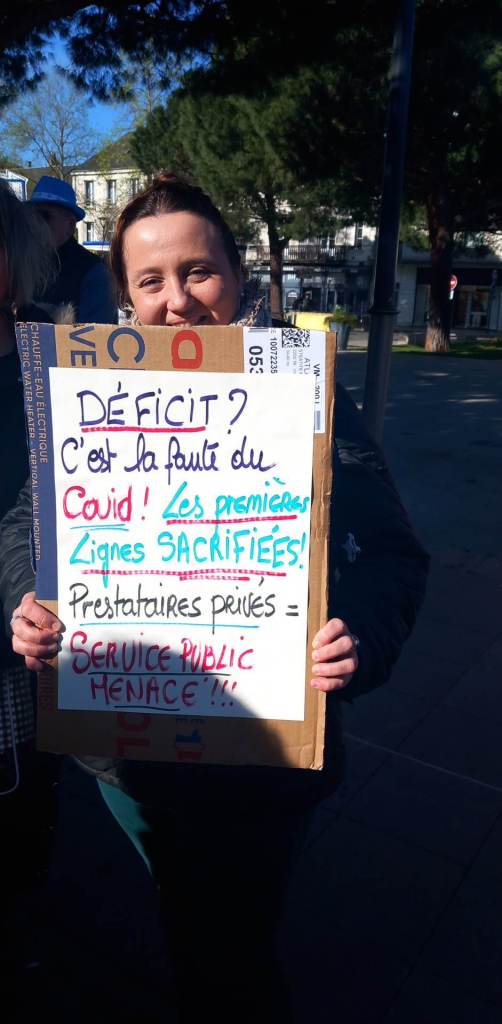 CHAUFFE-EAU ÉLECTRIQUE
ELECTRIC WATER HEATER - VERTICAL WALL MOUNTED
053
10072235
DÉFICIT ?
C'est la faute du
Covid ! Les premières
Lignes SACRIFIÉES !
Prestataires privés =
SERVICE PUBLIC
MENACÉ !!!